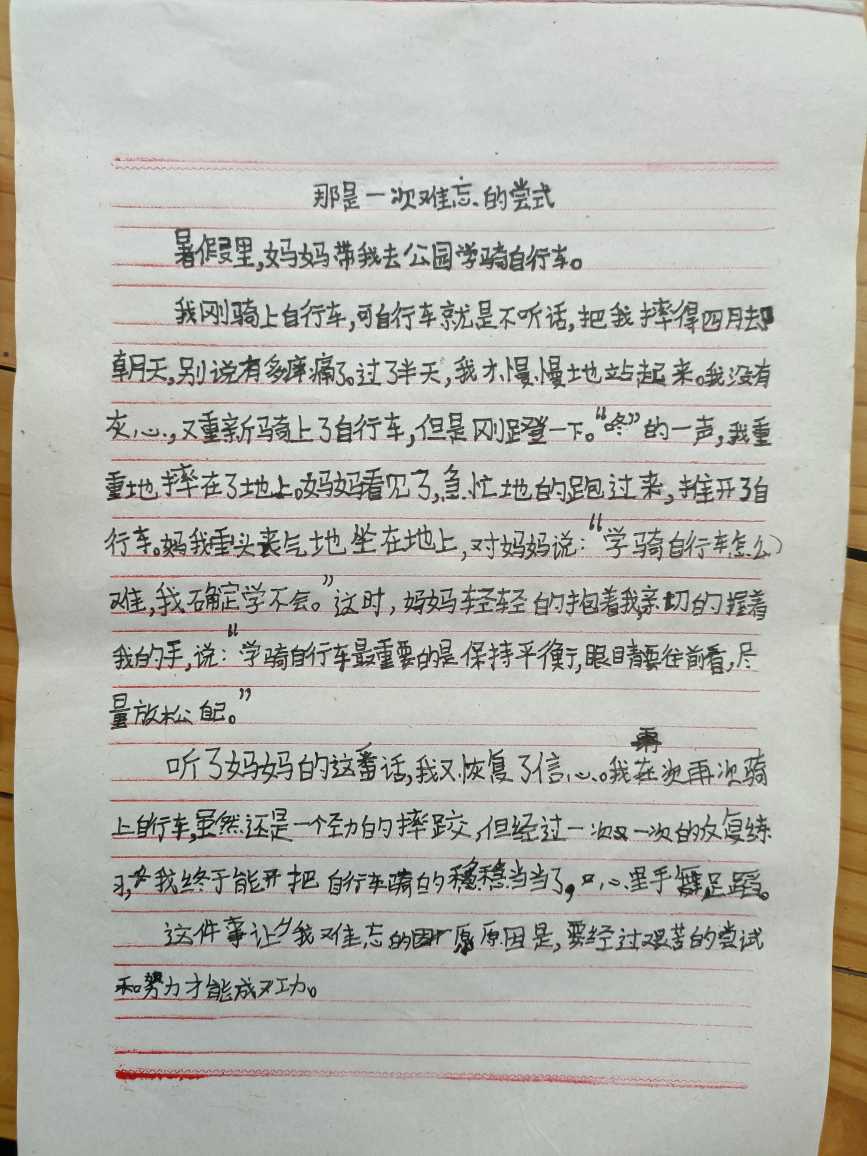 那是一次难忘的尝式
暑假里,妈妈带我去公园学骑自行车。
我刚骑上自行车,可自行车就是不听话,把我摔得四月去
朝天,别说有多疼痛了。过了半天,我才慢慢地站起来。我没有
灰心,又重新骑上了自行车,但是刚蹬一下。“咚”的一声,我重
重地摔在了地上。妈妈看见了,急忙地的跑过来,推开了自
行车。妈我垂头丧气地坐在地上,对妈妈说:“学骑自行车怎么
难,我确定学不会。”这时,妈妈轻轻的抱着我,亲切的握着
我的手,说:“学骑自行车最重要的是保持平衡,眼睛要往前看,尽
量放松自己。”
听了妈妈的这番话,我又恢复了信心。我在次再次骑
上自行车,虽然还是一个劲的摔跤,但经过一次又一次的反复练
习,我终于能把自行车骑的稳稳当当了,心里手舞足蹈。
这件事让我难忘的原因是,要经过艰苦的尝试
和努力才能成功。